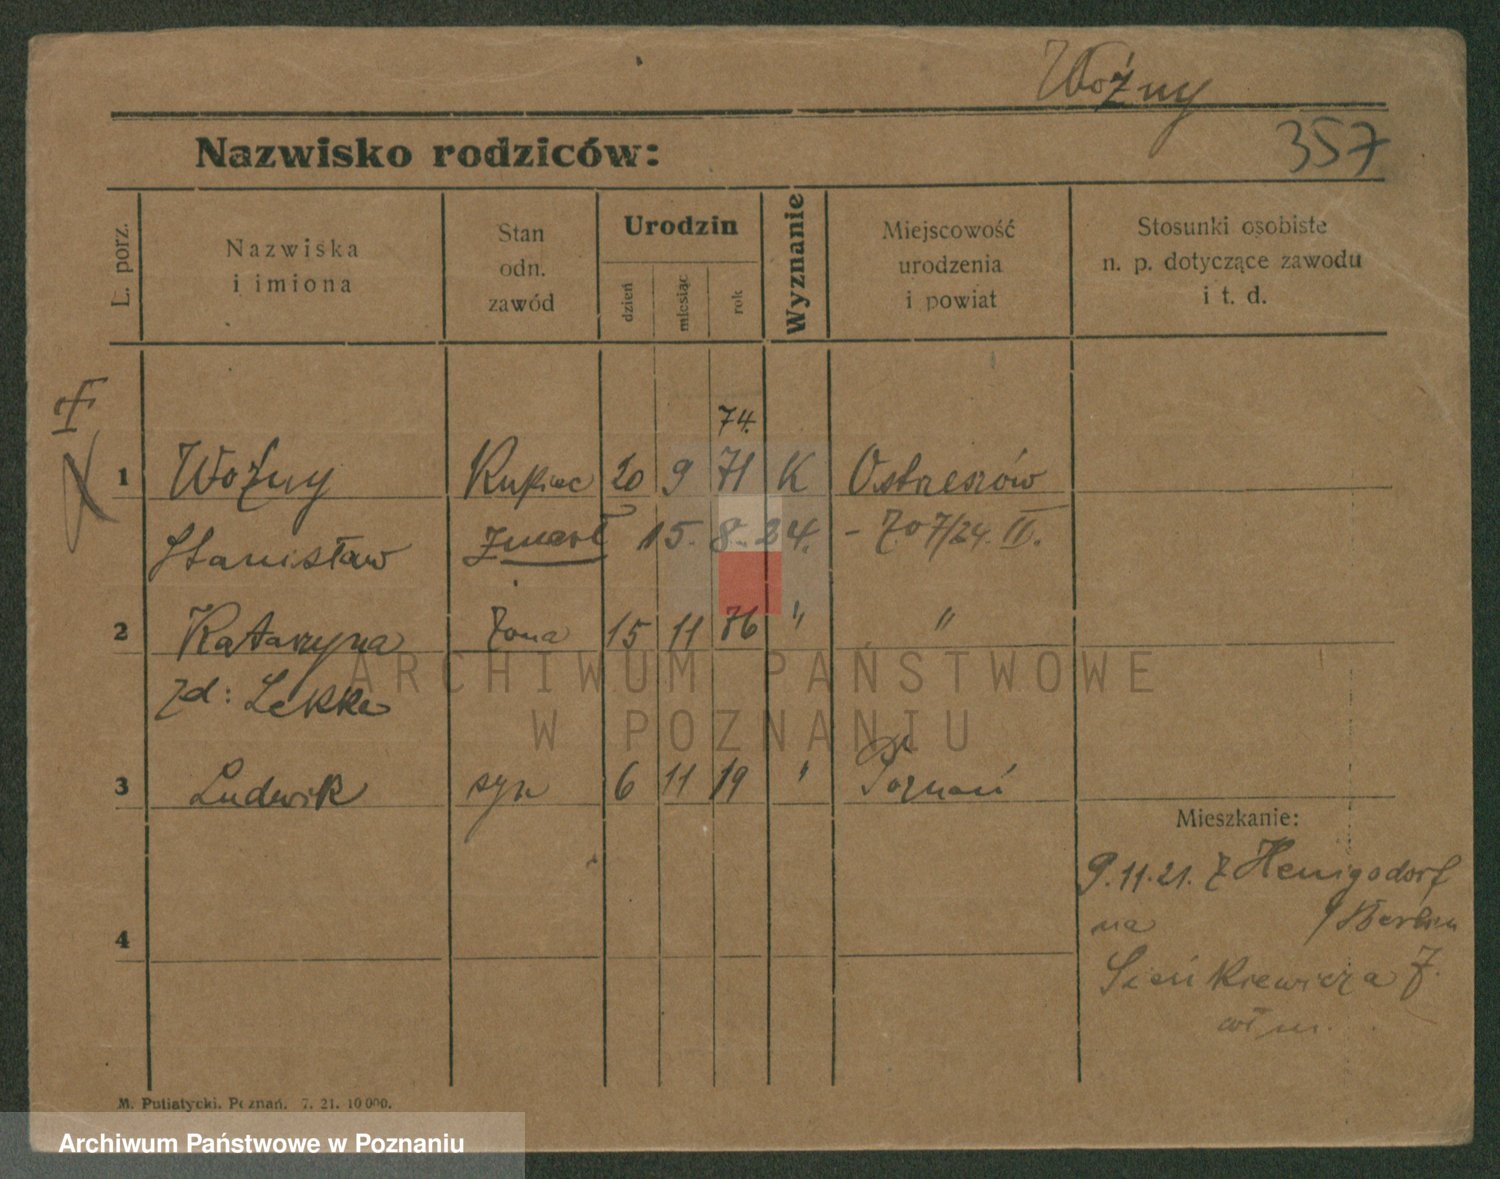 Woźny
Nazwisko rodziców:
357
L. porz.
Nazwiska
i imiona
Stan
odn.
zawód
Urodzin
dzień
miesiąc
rok
Wyznanie
Miejscowość
urodzenia
i powiat
Stosunki osobiste
n. p. dotyczące zawodu
i t. d.
74.
1 Woźny Kupiec 20 9 71 K Ostrzeszów
Stanisław zmarł 15. 8. 24. - 707/24. II.
2 Katarzyna żona 15 11 76 " "
zd: Lekka
ARCHIWUM PAŃSTWOWE
W POZNANIU
3 Ludwik syn 6 11 19 " Poznań
Mieszkanie:
9.11.21. z Henigsdorf
na p/Berlin
4
Sienkiewicza 7.
M. Putiatycki. Poznań. 7. 21. 10 000.
Archiwum Państwowe w Poznaniu